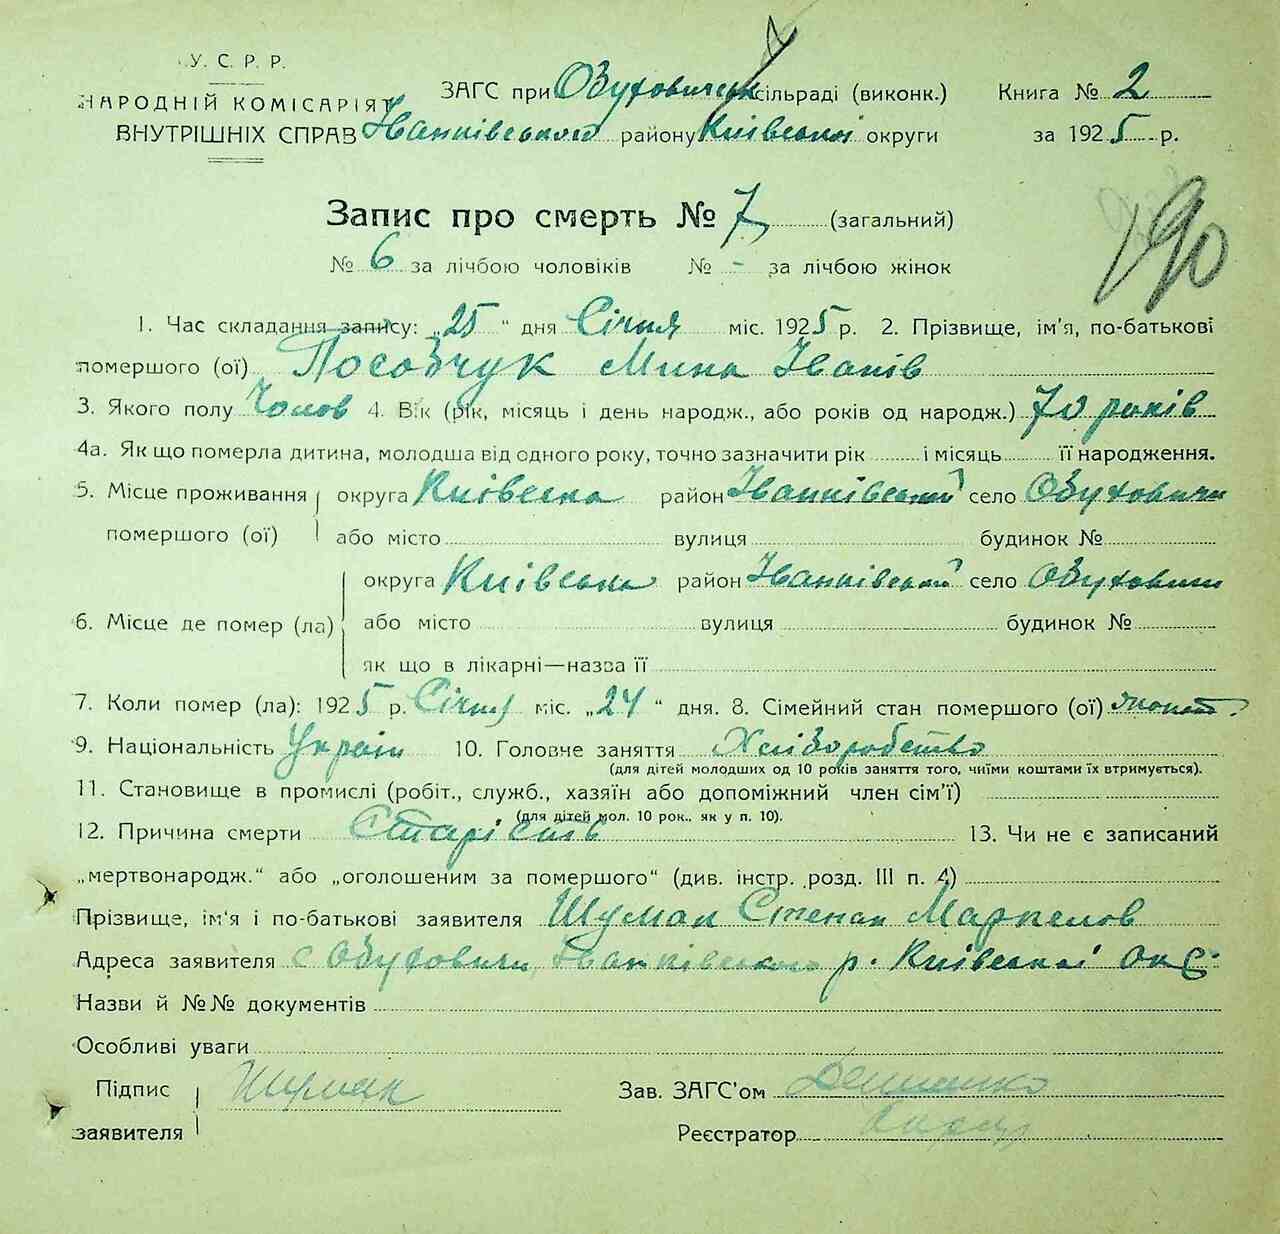 У. С. Р. Р.
НАРОДНІЙ КОМІСАРІЯТ
ВНУТРІШНІХ СПРАВ
ЗАГС при Обуховицькій сільраді (виконк.) Книга № 2
Іванківського району Київської округи за 1925 р.
Запис про смерть № 7 (загальний)
190
№ 6 за лічбою чоловіків № - за лічбою жінок
1. Час складання запису: „25“ дня Січня міс. 1925 р. 2. Прізвище, ім'я, по-батькові
помершого (ої) Пособчук Мина Іванів
3. Якого полу Чолов 4. Вік (рік, місяць і день народж., або років од народж.) 70 років
4а. Як що померла дитина, молодша від одного року, точно зазначити рік і місяць її народження.
5. Місце проживання помершого (ої) округа Київська район Іванківський село Обуховичи
або місто вулиця будинок №
6. Місце де помер (ла) округа Київська район Іванківський село Обуховичи
або місто вулиця будинок №
як що в лікарні—назва її
7. Коли помер (ла): 1925 р. Січня міс. „24“ дня. 8. Сімейний стан помершого (ої)
9. Національність Україн 10. Головне заняття Хліборобство
(для дітей молодших од 10 років заняття того, чиїми коштами їх втримується).
11. Становище в промислі (робіт., служб., хазяїн або допоміжний член сім'ї)
(для дітей мол. 10 рок., як у п. 10).
12. Причина смерти Старість 13. Чи не є записаний
„мертвонародж.“ або „оголошеним за помершого“ (див. інстр. розд. III п. 4)
Прізвище, ім'я і по-батькові заявителя Шумак Степан Маркелов
Адреса заявителя с Обуховичи, Іванківського р. Київської окр.
Назви й №№ документів
Особливі уваги
Підпис заявителя Шумак Зав. ЗАГС'ом
Реєстратор